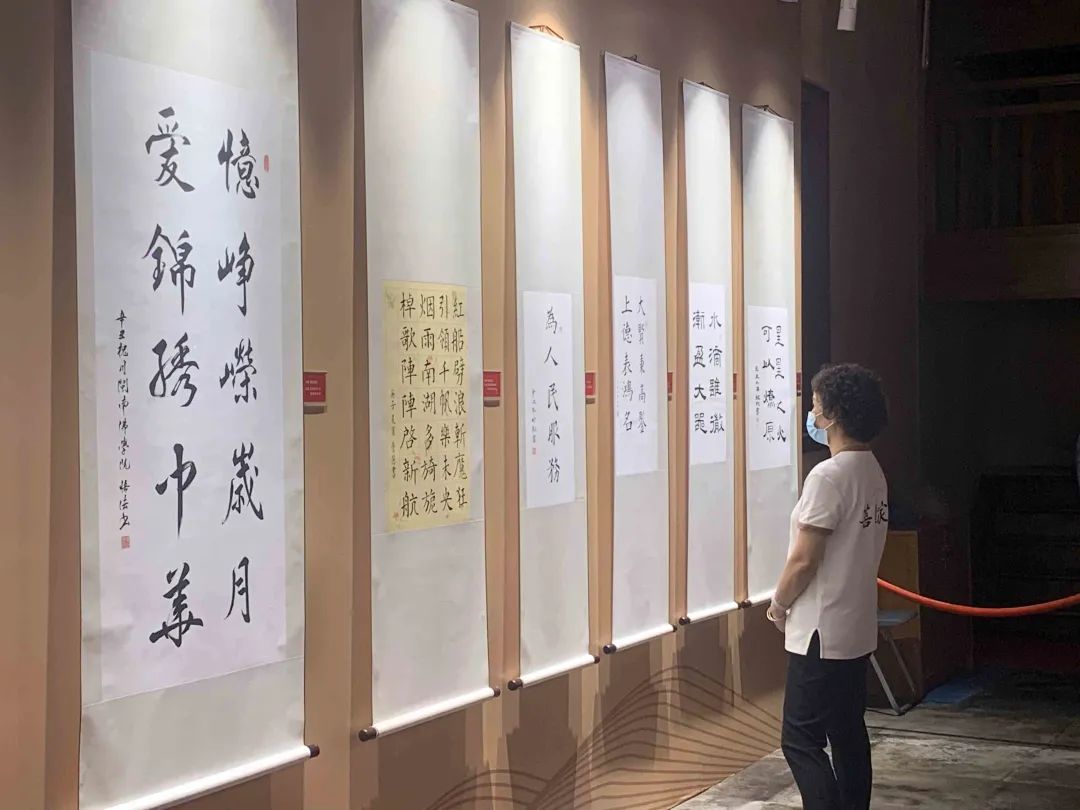 憶崢嶸歲月
愛錦繡中華
辛丑 閩南佛學院
紅船劈浪斬魔狂
引領千帆樂未央
烟雨南湖多旖旎
棹歌陣陣啓新航
為人民服務
大賢秉高鑒
上德表鴻名
水滴雖微
漸盈大器
星星之火
可以燎原
善